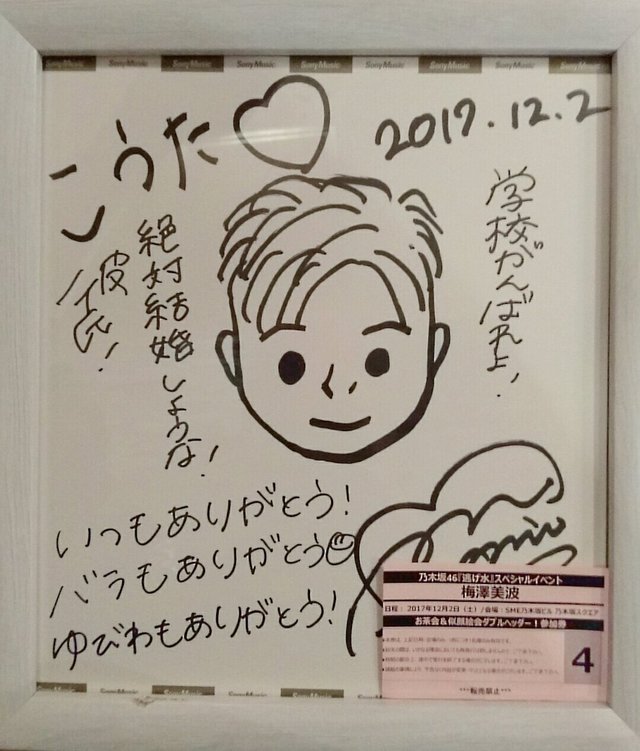 こうた♡
2017.12.2
学校がんばれよ!
絶対結婚しような!
彼氏!
いつもありがとう!
バラもありがとう☺
ゆびわもありがとう!
乃木坂46『逃げ水』スペシャルイベント
梅澤美波
日程: 2017年12月2日(土)/会場:SME乃木坂ビル 乃木坂スクエア
お茶会&似顔絵会ダブルヘッダー!参加券
4
***転売禁止***
Sony Music